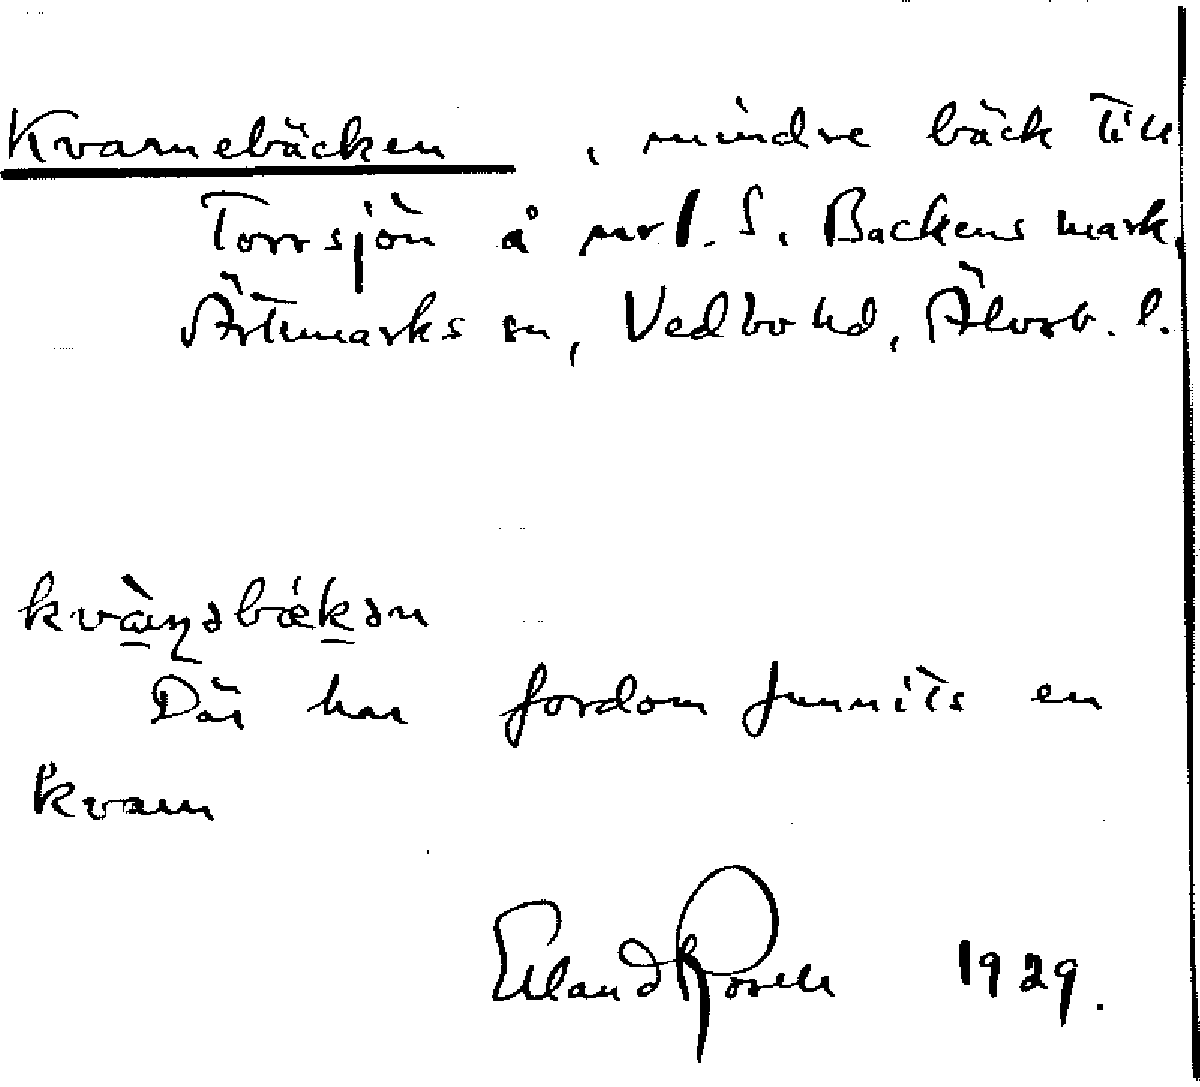 Kvarnebäcken, mindre bäck till
Torrsjön å nr 1. S. Backens mark,
Ärtemarks sn, Vedbo hd, Älvsb. l.
kvàṇəbækən
Där har fordom funnits en
kvarn
Erland Rosell 1929.